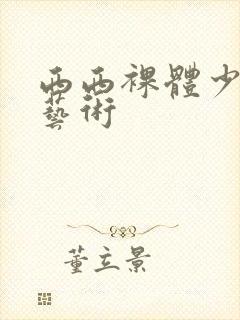 西西裸體少
藝術
董立景